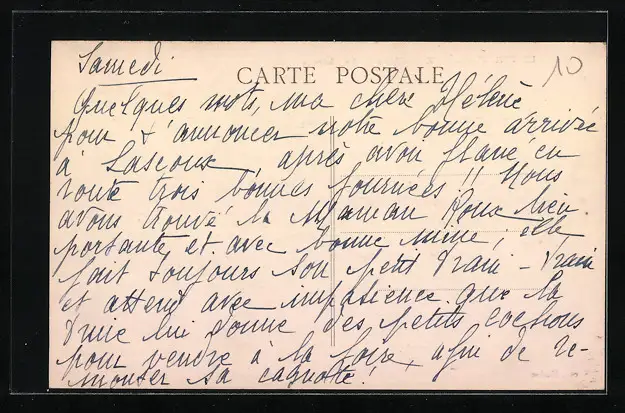 Samedi
CARTE POSTALE
10
Quelques mots, ma chère Hélène
pour t'annoncer notre bonne arrivée
à Lascoux, après avoir flâné en
route trois bonnes journées!! Nous
avons trouvé la Maman Roux bien
portante et avec bonne mine; elle
fait toujours son petit train-train
et attend avec impatience que la
truie lui donne des petits cochons
pour vendre à la foire, afin de re-
monter sa cagnotte!